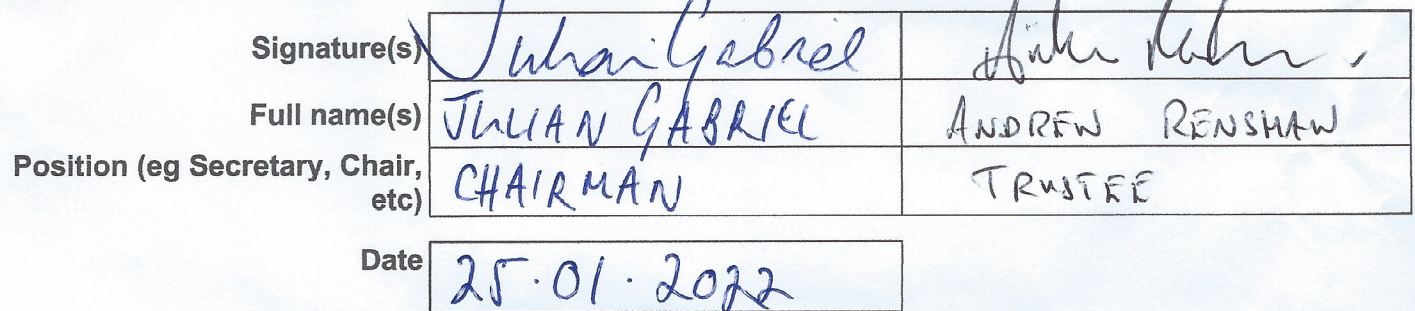 Signature(s) Julian Gabriel
Full name(s) JULIAN GABRIEL ANDREW RENSHAW
Position (eg Secretary, Chair, etc) CHAIRMAN TRUSTEE
Date 25.01.2022